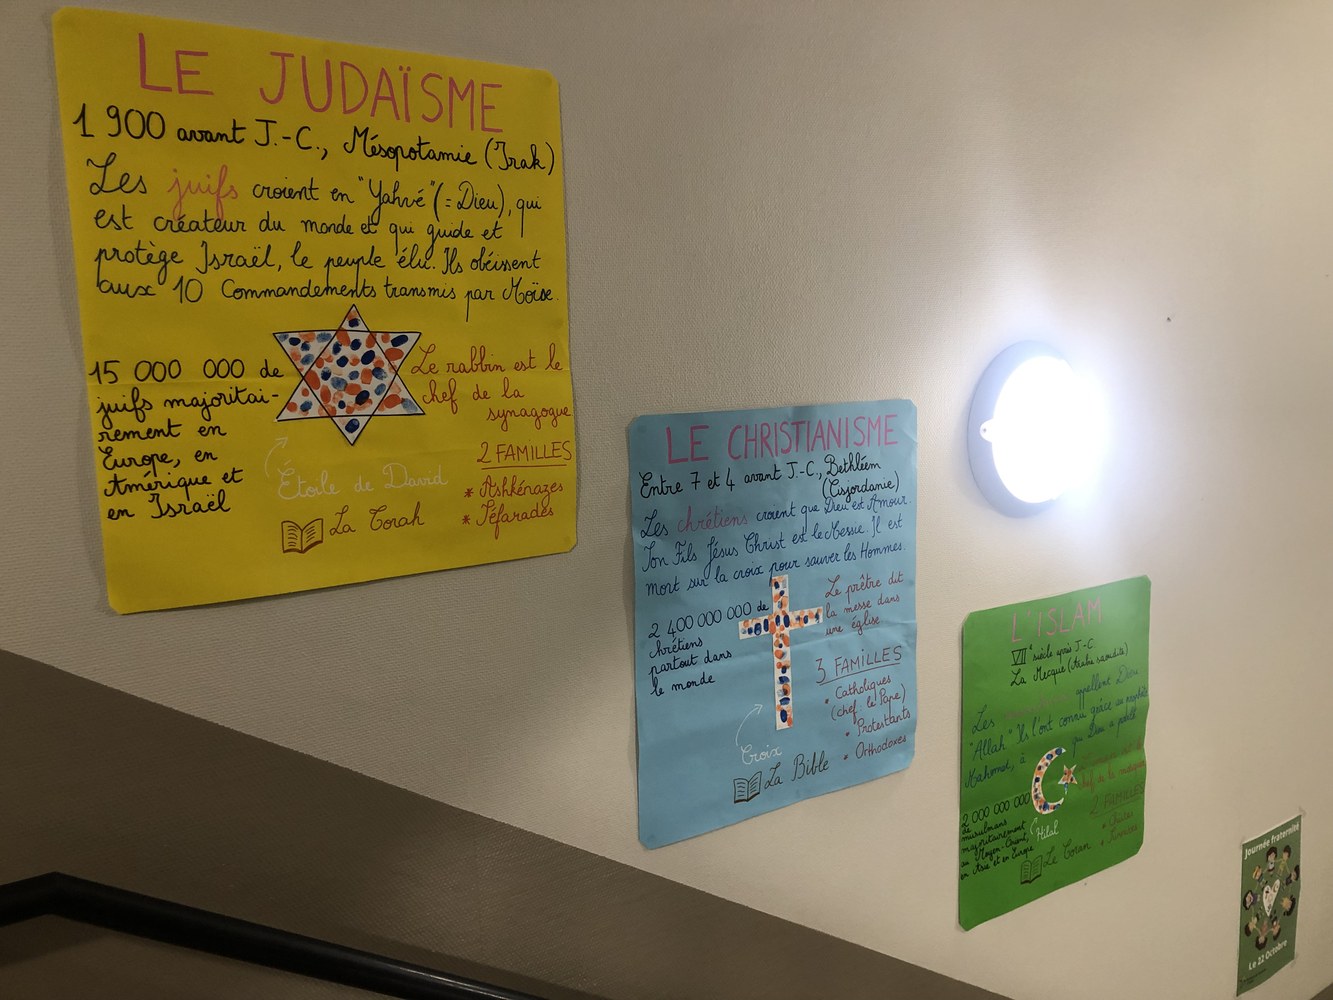 LE JUDAÏSME
1 900 avant J.-C., Mésopotamie (Irak)
Les juifs croient en "Yahvé" (= Dieu), qui
est créateur du monde et qui guide et
protège Israël, le peuple élu. Ils obéissent
aux 10 Commandements transmis par Moïse.
15 000 000 de
juifs majoritai-
rement en
Europe, en
Amérique et
en Israël
Le rabbin est le
chef de la
synagogue
2 FAMILLES
* Ashkénazes
* Séfarades
Étoile de David
La Torah
LE CHRISTIANISME
Entre 7 et 4 avant J.-C., Bethléem
(Cisjordanie)
Les chrétiens croient que Dieu est Amour
Son Fils Jésus Christ est le Messie. Il est
mort sur la croix pour sauver les Hommes.
2 400 000 000 de
chrétiens
partout dans
le monde
Le prêtre dit
la messe dans
une église.
3 FAMILLES
* Catholiques
(chef : le Pape)
* Protestants
* Orthodoxes
Croix
La Bible
L'ISLAM
VIIe siècle après J.-C.
La Mecque (Arabie saoudite)
Les appellent Dieu
"Allah". Ils l'ont connu grâce au prophète
Mahomet, à qui Dieu a parlé
2 000 000 000
de
musulmans
majoritairement
au Moyen-Orient,
en Asie et en Europe
chef de la mosquée
2 FAMILLES
* Chiites
* Sunnites
Hilal
Le Coran
Journée fraternité
Le 22 Octobre